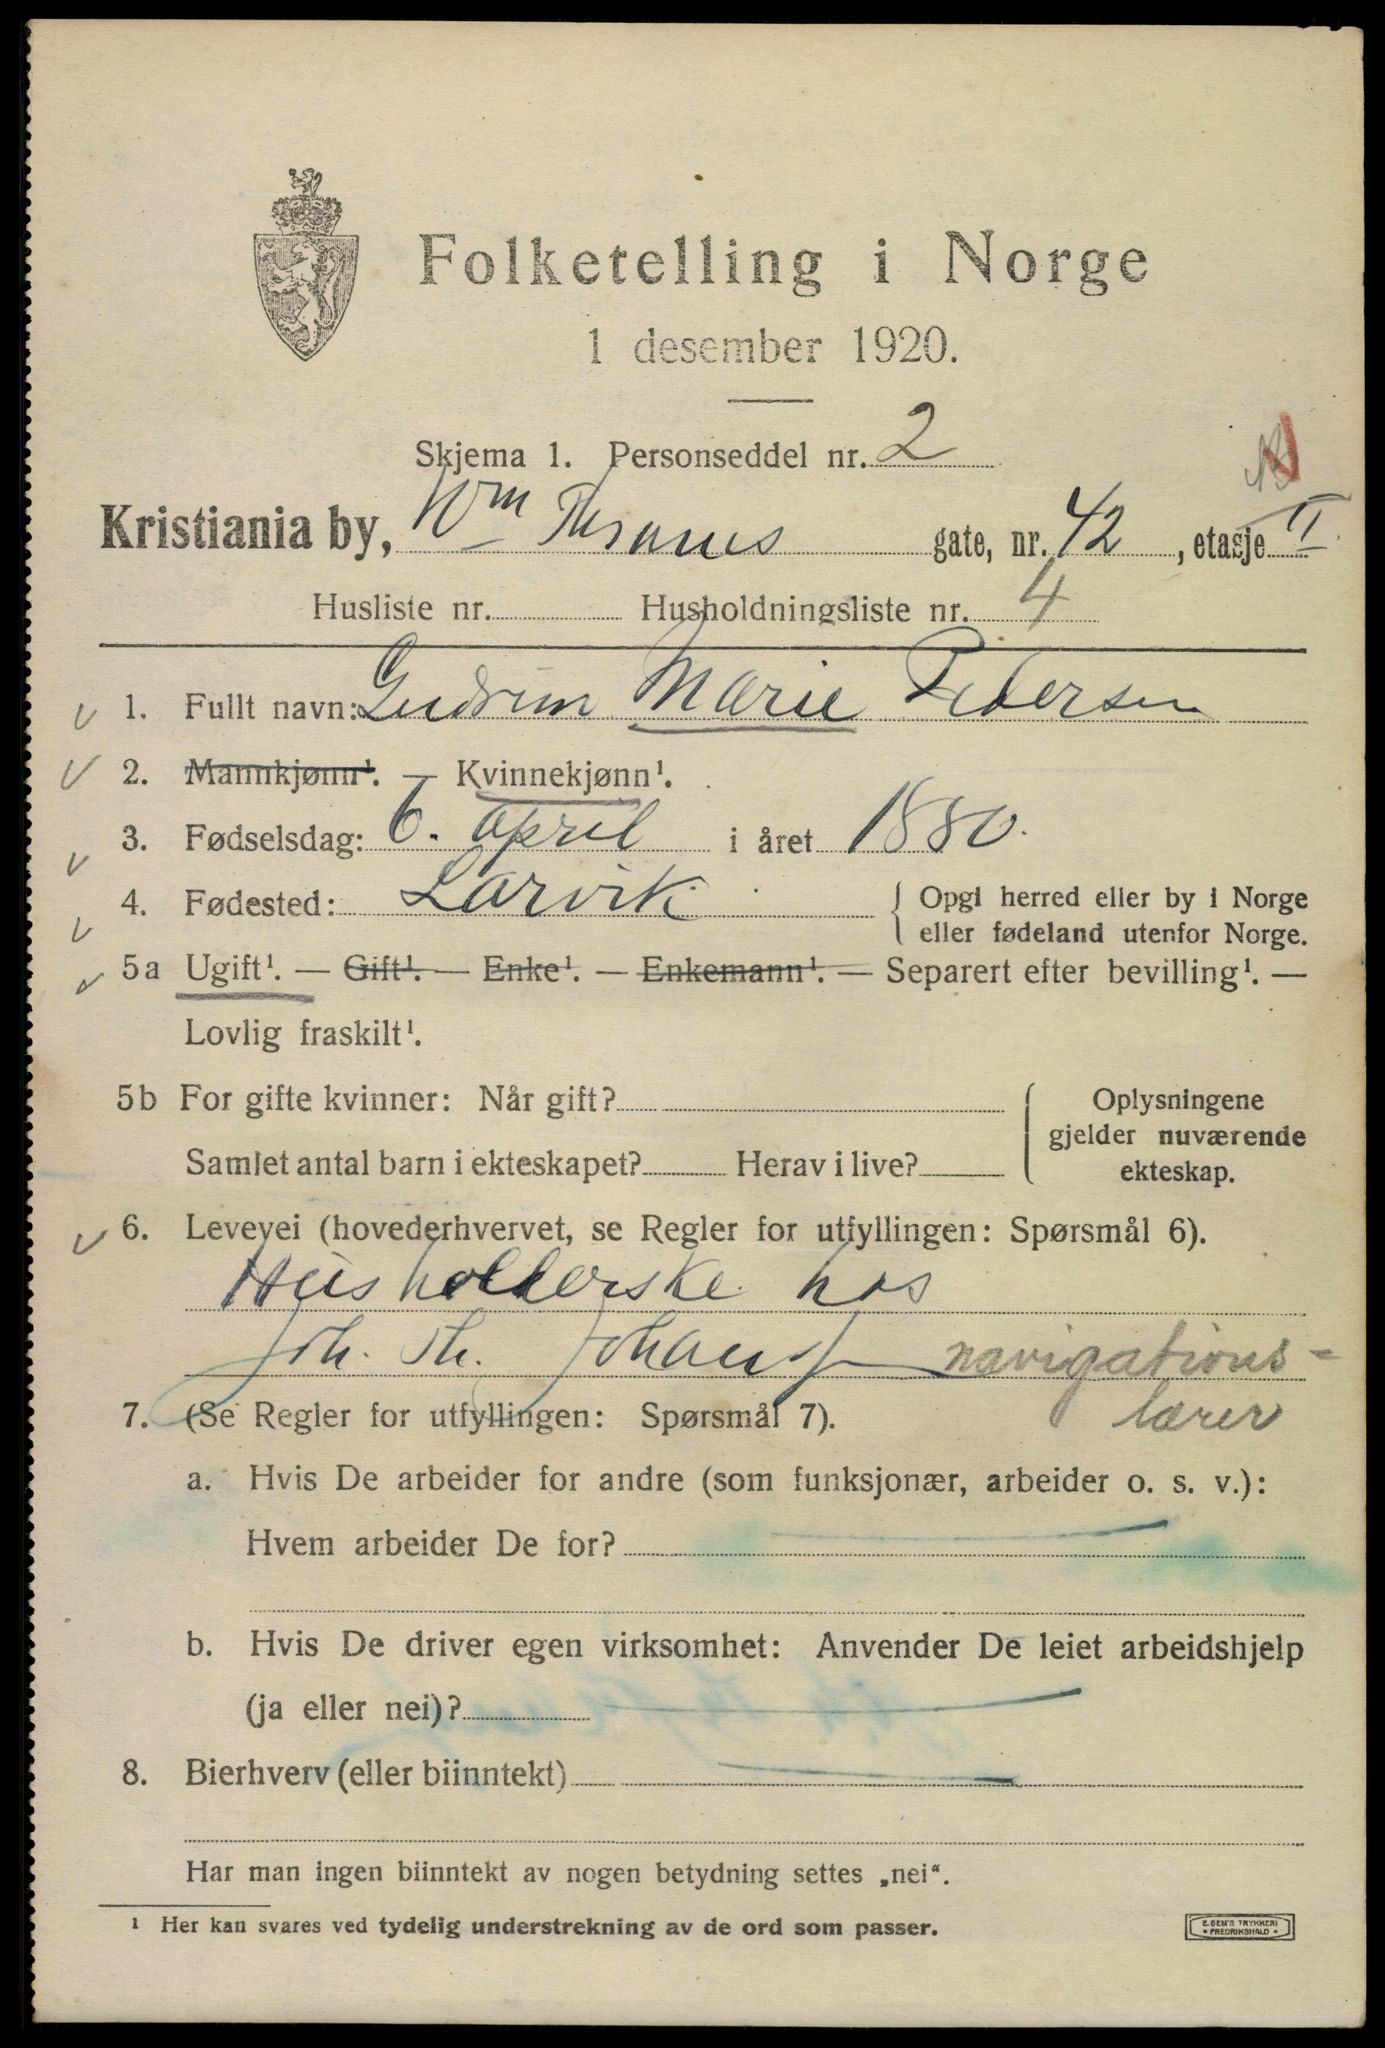 Folketelling i Norge
1 desember 1920.
Skjema 1. Personseddel nr. 2
Kristiania by, Wm Thranes gate, nr. 42, etasje II
Husliste nr. Husholdningsliste nr. 4
1. Fullt navn: Gudrun Marie Pedersen
2. Mannkjønn¹. — Kvinnekjønn¹.
3. Fødselsdag: 6. april i året 1880.
4. Fødested: Larvik { Opgi herred eller by i Norge
eller fødeland utenfor Norge.
5a Ugift¹. — Gift¹. — Enke¹. — Enkemann¹. — Separert efter bevilling¹. —
Lovlig fraskilt¹.
5b For gifte kvinner: Når gift? Oplysningene
gjelder nuværende
Samlet antal barn i ekteskapet? Herav i live? ekteskap.
6. Levevei (hovederhvervet, se Regler for utfyllingen: Spørsmål 6).
Husholderske hos
Joh. Th. navigations-
lærer
7. (Se Regler for utfyllingen: Spørsmål 7).
a. Hvis De arbeider for andre (som funksjonær, arbeider o. s. v.):
Hvem arbeider De for?
b. Hvis De driver egen virksomhet: Anvender De leiet arbeidshjelp
(ja eller nei)?
8. Bierhverv (eller biinntekt)
Har man ingen biinntekt av nogen betydning settes „nei“.
¹ Her kan svares ved tydelig understrekning av de ord som passer.
E. SEM'S TRYKKERI
FREDRIKSHALD